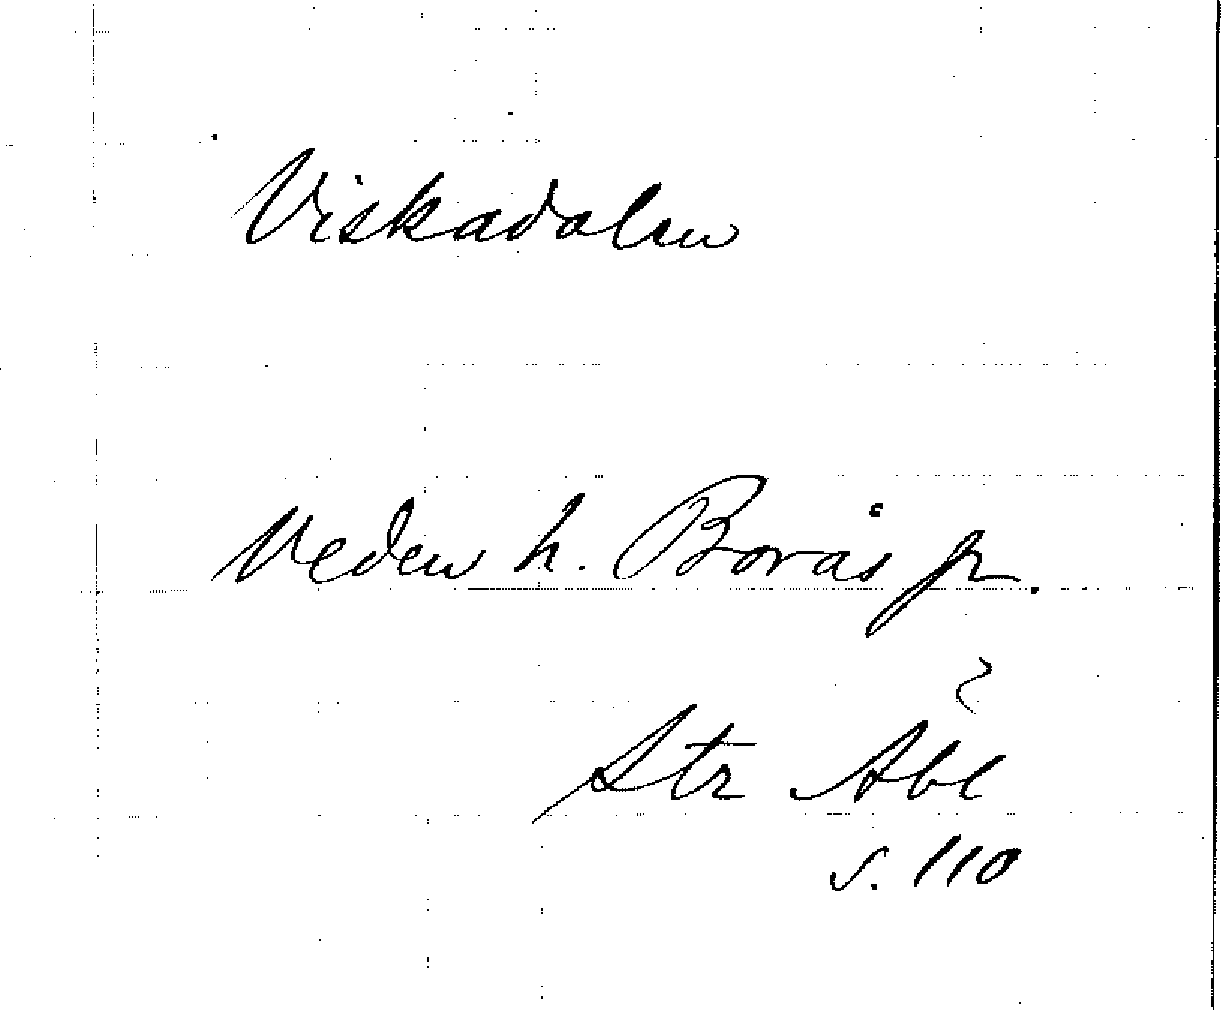 Viskadalen
Veden h. Borås fr.
Str Åbl
s. 110